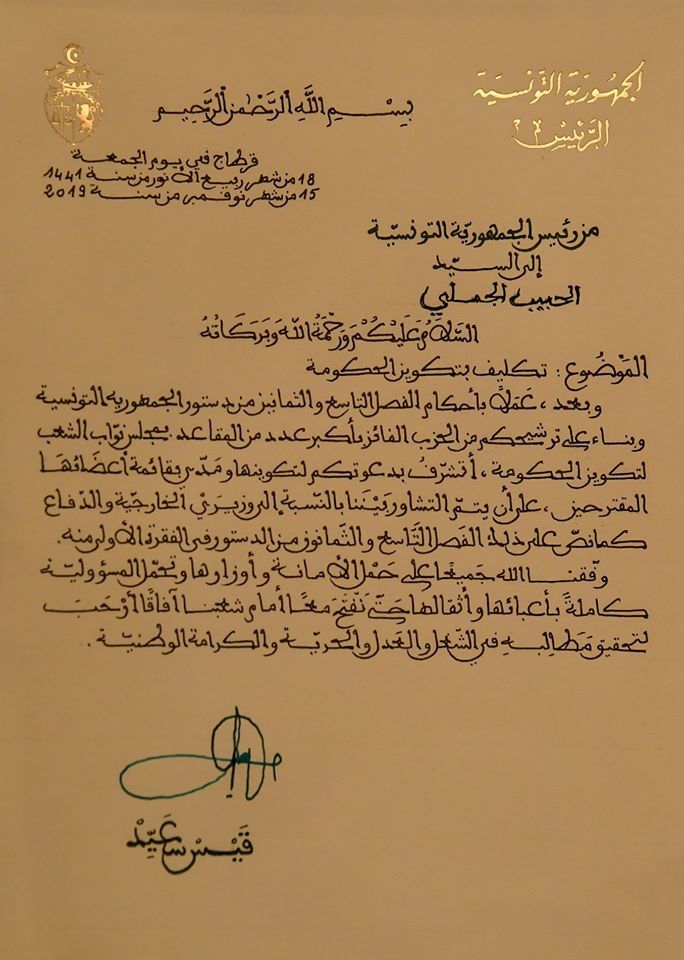 الجمهورية التونسية
الرئيس
بِسْمِ اللَّهِ الرَّحْمٰنِ الرَّحِيمِ
قرطاج في يوم الجمعة
18 من شهر ربيع الأنور من سنة 1441
15 من شهر نوفمبر من سنة 2019
من رئيس الجمهوريّة التونسيّة
إلى السيّد
الحبيب الجملي
السَّلَامُ عَلَيْكُمْ وَرَحْمَةُ اللَّهِ وَبَرَكَاتُهُ
المَوْضُوع : تكليف بتكوين الحكومة
وبعد، عَمَلًا بأحكام الفصل التاسع والثمانين من دستور الجمهورية التونسية
وبناء على ترشيحكم من الحزب الفائز بأكبر عدد من المقاعد بمجلس نوّاب الشعب
لتكوين الحكومة، أتشرّف بدعوتكم لتكوينها ومَدّي بقائمة أعضائها
المقترحين، على أن يتمّ التشاور بَيْننا بالنّسبة إلى وزيريْ الخارجيّة والدّفاع
كما نصّ على ذلك الفصل التّاسع والثّمانون من الدستور في الفقرة الأولى منه.
وفّقنا الله جَميعًا على حَمْل الأمانة وأوزارها وتحمّل المسؤوليّة
كاملةً بأعبائها وأثقالها حَتّى نَفْتَحَ مَعًا أمام شعبنا آفاقًا أرْحَبَ
لتحقيق مَطَالبه في الشّغل والعدل والحريّة والكرامة الوطنيّة.
قَيْس سَعَيِّدْ